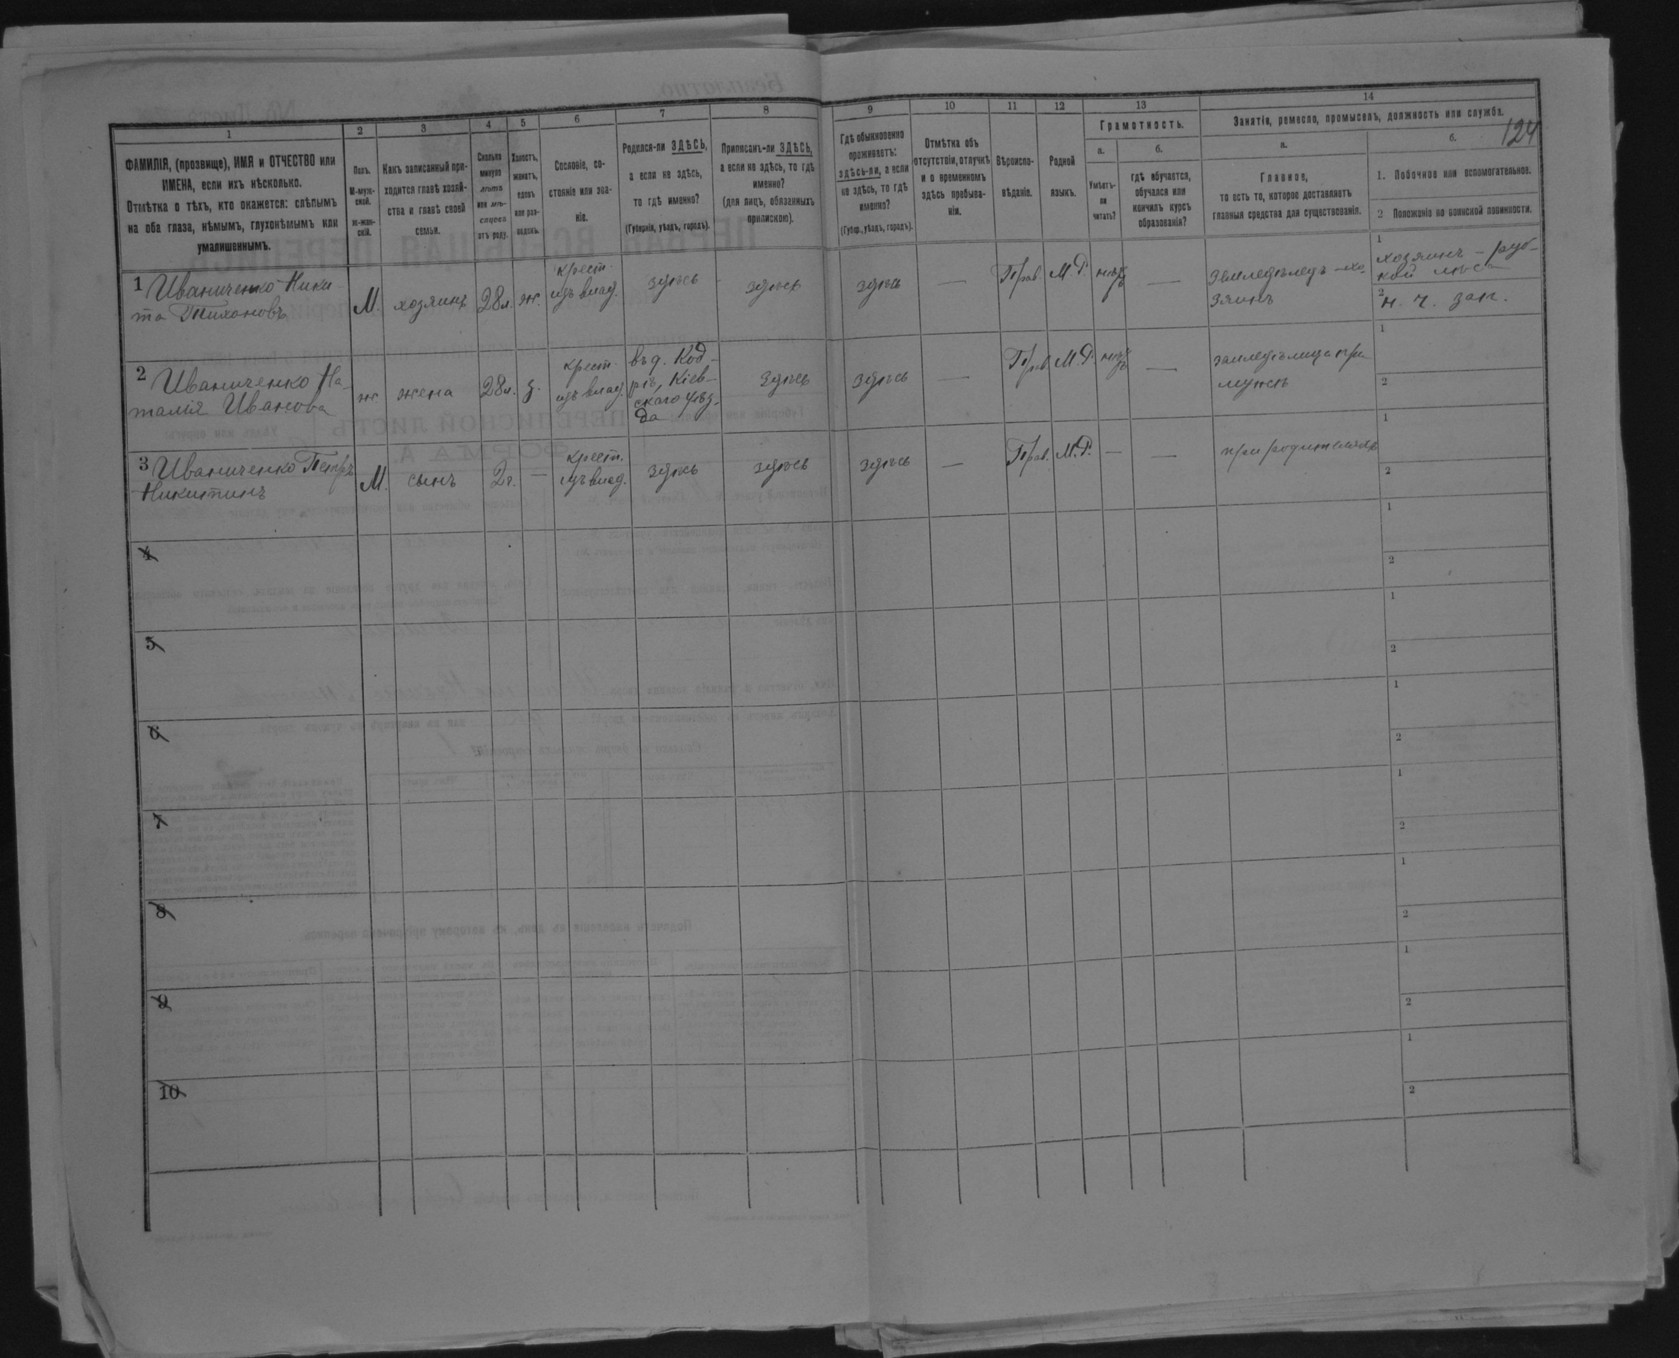 124
1 2 3 4 5 6 7 8 9 10 11 12 13 14
ФАМИЛІЯ, (прозвище), ИМЯ и ОТЧЕСТВО или
ИМЕНА, если ихъ нѣсколько.
Отмѣтка о тѣхъ, кто окажется: слѣпымъ
на оба глаза, нѣмымъ, глухонѣмымъ или
умалишеннымъ.
Полъ.
М-муж-
ской.
ж-жен-
скій.
Какъ записанный при-
ходится главѣ хозяй-
ства и главѣ своей
семьи.
Сколько
минуло
лѣтъ
или мѣ-
сяцевъ
отъ роду.
Холостъ,
женатъ,
вдовъ
или раз-
веденъ.
Сословіе, со-
стояніе или зва-
ніе.
Родился-ли ЗДѢСЬ,
а если не здѣсь,
то гдѣ именно?
(Губернія, уѣздъ, городъ).
Приписанъ-ли ЗДѢСЬ,
а если не здѣсь, то гдѣ
именно?
(для лицъ, обязанныхъ
припискою).
Гдѣ обыкновенно
проживаетъ:
здѣсь-ли, а если
не здѣсь, то гдѣ
именно?
(Губер., уѣздъ, городъ).
Отмѣтка объ
отсутствіи, отлучкѣ
и о временномъ
здѣсь пребыва-
ніи.
Вѣроиспо-
вѣданіе.
Родной
языкъ.
Грамотность.
а.
Умѣетъ-
ли
читать?
б.
гдѣ обучается,
обучался или
кончилъ курсъ
образованія?
Занятіе, ремесло, промыселъ, должность или служба.
а.
Главное,
то есть то, которое доставляетъ
главныя средства для существованія.
б.
1. Побочное или вспомогательное.
2 Положеніе по воинской повинности.
1 Иваниченко Ники-
та Тихоновъ
М. хозяинъ 28 л. ж.
крест.
изъ влад.
здѣсь здѣсь здѣсь — Прав. М.Р. нѣтъ —
Земледѣлецъ – хо-
зяинъ
1 хозяинъ – руб-
кой лѣса
2 н. ч. зап.
2 Иваниченко На-
талія Иванова
ж жена 28 л. з.
крест.
изъ влад.
въ д. Код-
рѣ, Кіев-
скаго уѣз-
да
здѣсь здѣсь — Прав. М.Р. нѣтъ —
земледѣлица при
мужѣ
1
2
3 Иваниченко Петръ
Никитинъ
М. сынъ 2 г. —
крест.
изъ влад.
здѣсь здѣсь здѣсь — Прав. М.Р. — —
при родителяхъ
1
2
4
1
2
5
1
2
6
1
2
7
1
2
8
1
2
9
1
2
10
1
2